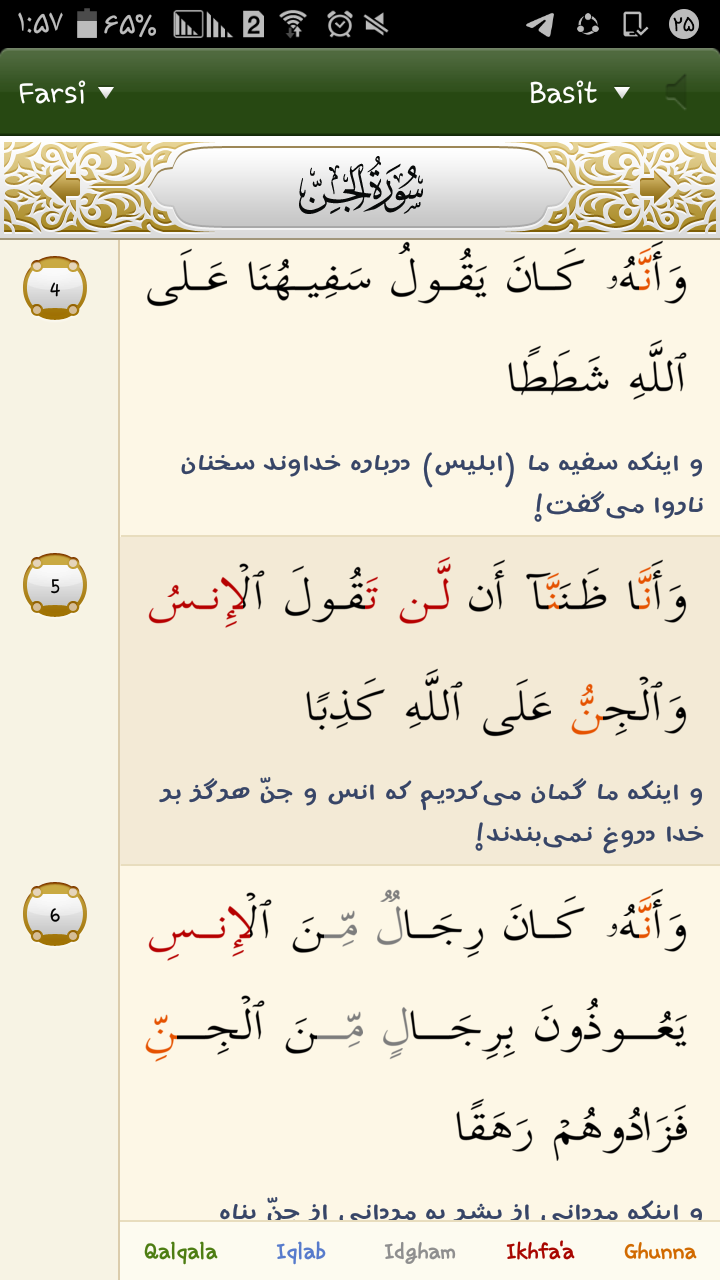 ۱:۵۷ ۶۵% 2 ۲۵
Farsi Basit
سُورَةُ الجِنّ
4
وَأَنَّهُۥ كَانَ يَقُولُ سَفِيهُنَا عَلَى
ٱللَّهِ شَطَطًا
و اینکه سفیه ما (ابلیس) درباره خداوند سخنان
ناروا می‌گفت!
5
وَأَنَّا ظَنَنَّآ أَن لَّن تَقُولَ ٱلْإِنسُ
وَٱلْجِنُّ عَلَى ٱللَّهِ كَذِبًا
و اینکه ما گمان می‌کردیم که انس و جنّ هرگز بر
خدا دروغ نمی‌بندند!
6
وَأَنَّهُۥ كَانَ رِجَالٌ مِّنَ ٱلْإِنسِ
يَعُوذُونَ بِرِجَالٍ مِّنَ ٱلْجِنِّ
فَزَادُوهُمْ رَهَقًا
و اینکه مردانی از بشر به مردانی از جنّ پناه
Qalqala Iqlab Idgham Ikhfa'a Ghunna